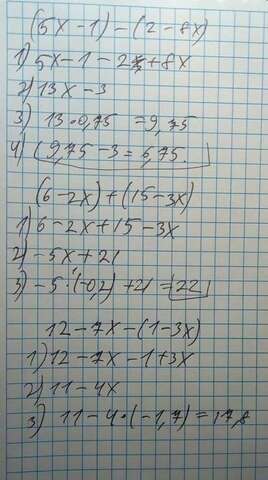 (5x - 1) - (2 - 8x)
1) 5x - 1 - 2 + 8x
2) 13x - 3
3) 13 · 0,75 = 9,75
4) 9,75 - 3 = 6,75.
(6 - 2x) + (15 - 3x)
1) 6 - 2x + 15 - 3x
2) -5x + 21
3) -5 · (-0,2) + 21 = 22
12 - 7x - (1 - 3x)
1) 12 - 7x - 1 + 3x
2) 11 - 4x
3) 11 - 4 · (-1,7) = 17,8